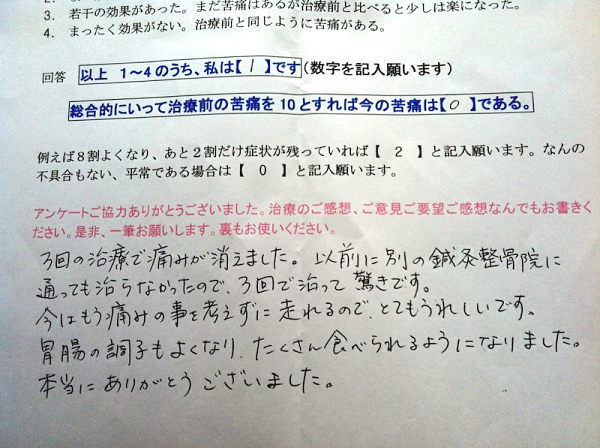 3. 若干の効果があった。まだ苦痛はあるが治療前と比べると少しは楽になった。
4. まったく効果がない。治療前と同じように苦痛がある。
回答 以上 1～4のうち、私は【 1 】です(数字を記入願います)
総合的にいって治療前の苦痛を10とすれば今の苦痛は【 0 】である。
例えば８割よくなり、あと２割だけ症状が残っていれば【 2 】と記入願います。なんの
不具合もない、平常である場合は【 0 】と記入願います。
アンケートご協力ありがとうございました。治療のご感想、ご意見ご要望ご感想なんでもお書きく
ださい。是非、一筆お願いします。裏もお使いください。
3回の治療で痛みが消えました。以前に別の鍼灸整骨院に
通っても治らなかったので、3回で治って驚きです。
今はもう痛みの事を考えずに走れるので、とてもうれしいです。
胃腸の調子もよくなり、たくさん食べられるようになりました。
本当にありがとうございました。